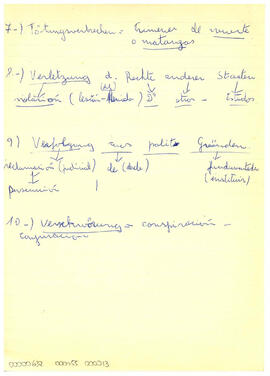 7-) Tötungsverbrechen = Crimenes de muerte
o matanzas
8-) Verletzung d. Rechte anderer Staaten
violación (lesión-herida) Dº otros - Estados
9) Verfolgung aus polit. Gründen
reclamación (judicial) de (desde) fundamentos
persecución (institui)
10-) Verschwörung = conspiración -
conjuración
00000632 000155 000013